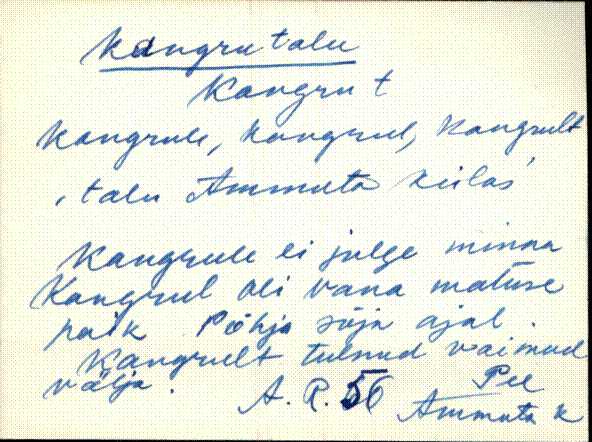 Kangru talu
Kangru t
Kangrule, Kangrul, Kangrult
, talu Ammuta külas
Kangrule ei julge minna
Kangrul oli vana matuse
paik Põhja sõja ajal.
Kangrult tulnud vaimud
välja.
A. R. 56 Pee
Ammuta k